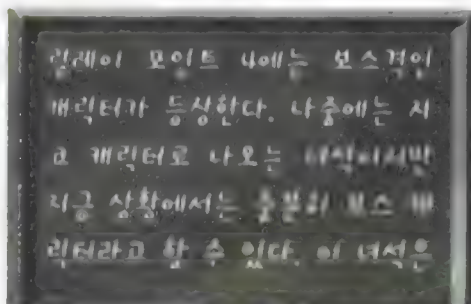 릴레이 포인트 4에는 보스격인
캐릭터가 등상한다. 나중에는 시
고 캐릭터로 나오는 녀석이지만
지금 상황에서는 충분히 보스 캐
릭터라고 할 수 있다. 이 녀석은